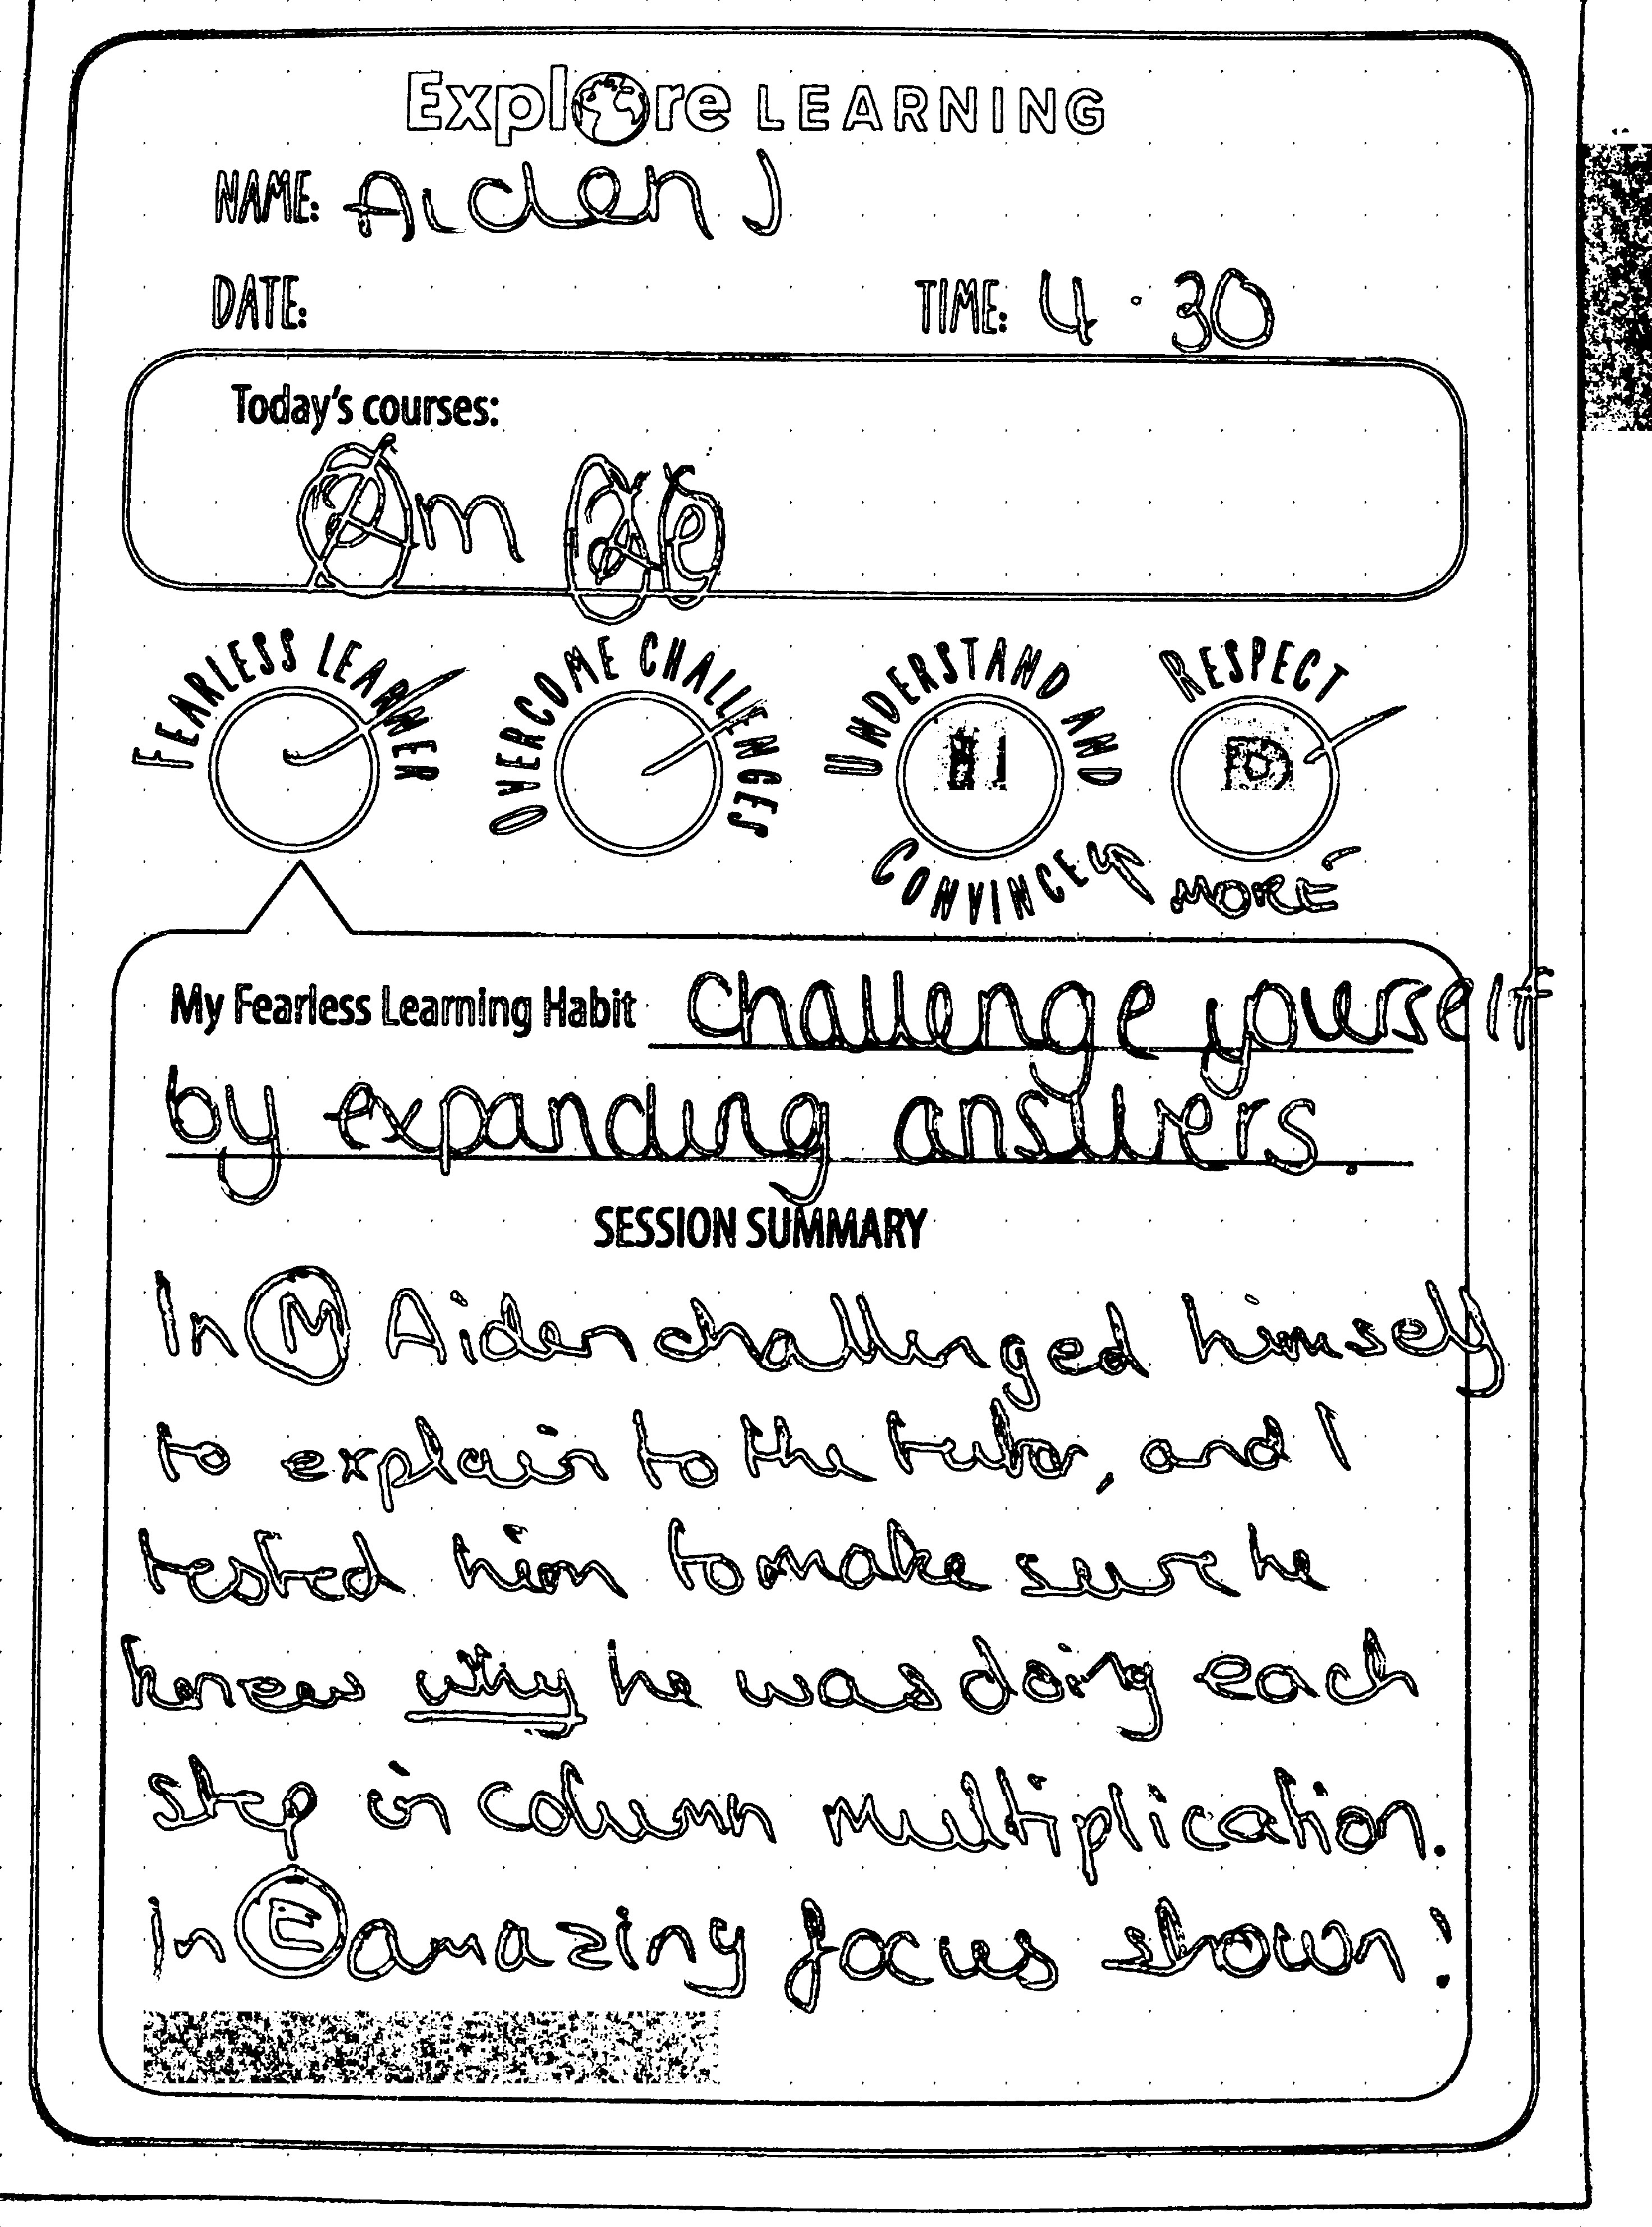 Explore LEARNING
NAME: Aiden J
DATE: TIME: 4.30
Today's courses:
m
FEARLESS LEARNER OVERCOME CHALLENGES UNDERSTAND AND CONVINCE RESPECT
MORE
My Fearless Learning Habit challenge yourself
by expanding answers.
SESSION SUMMARY
In M Aiden challenged himself
to explain to the tutor, and I
tested him to make sure he
knew why he was doing each
step in column multiplication.
In E amazing focus shown!